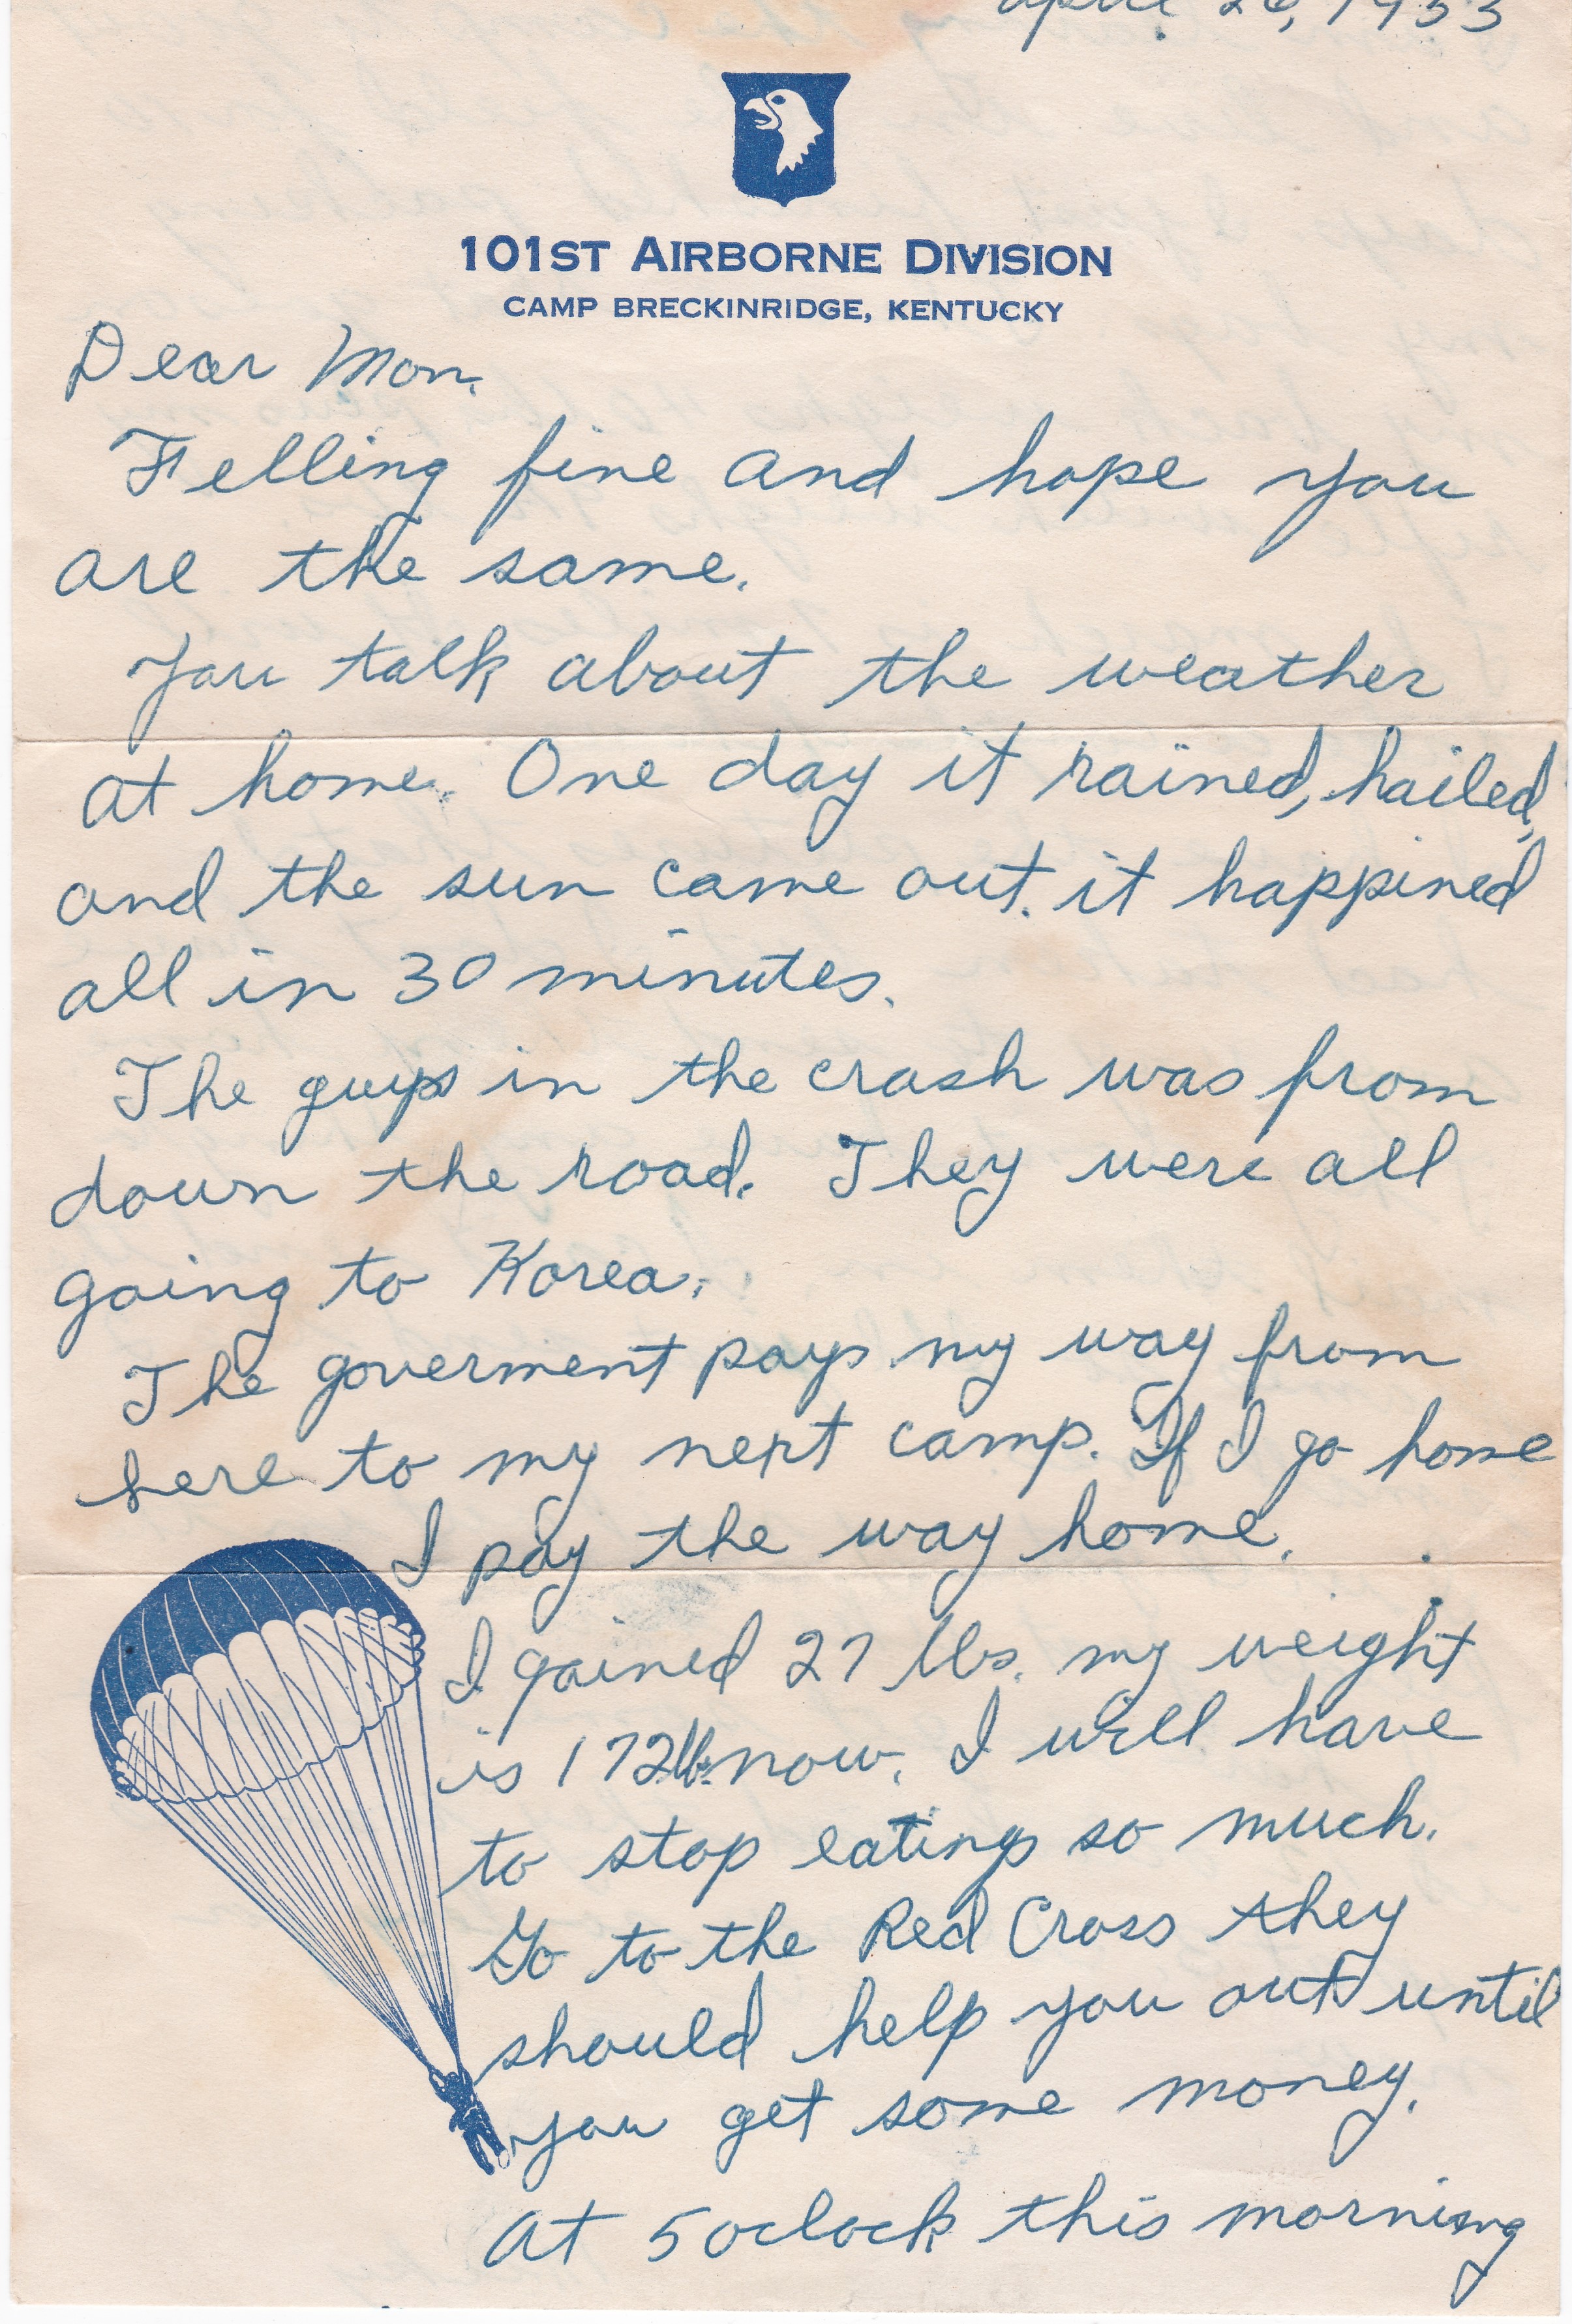 April 26, 1953
101ST AIRBORNE DIVISION
CAMP BRECKINRIDGE, KENTUCKY
Dear Mom.
Felling fine and hope you
are the same.
You talk about the weather
at home. One day it rained, hailed,
and the sun came out. it happined
all in 30 minutes.
The guys in the crash was from
down the road. They were all
going to Korea.
The goverment pays my way from
here to my next camp. If I go home
I pay the way home.
I gained 27 lbs. my weight
is 172lb. now. I will have
to stop eating so much.
Go to the Red Cross they
should help you out until
you get some money.
At 5 oclock this morning